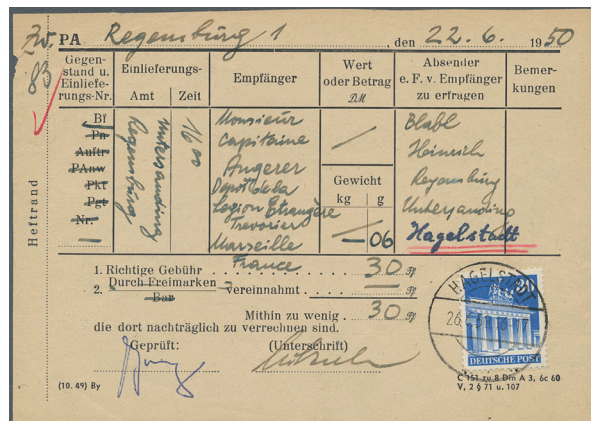 Zw. PA Regensburg 1, den 22.6. 1950
83
Gegen-
stand u.
Einliefe-
rungs-Nr.
Einlieferungs-
Amt
Zeit
Empfänger
Wert
oder Betrag
DM
Absender
e. F. v. Empfänger
zu erfragen
Bemer-
kungen
Bf
Pn
Auftr
PAnw
Pkt
Pgt
Nr.
Regensburg
Untersanding
16 00
Monsieur
Capitaine
Angerer
Depot de la
Legion Etrangère
Trevorier
Marseille
France
Gewicht
kg g
— 06
Blabl
Heinrich
Regensburg
Untersanding
Hagelstadt
Heftrand
1. Richtige Gebühr . . . . 30 Pf
2. Durch Freimarken
Bar
vereinnahmt . — Pf
Mithin zu wenig . 30 Pf
die dort nachträglich zu verrechnen sind.
Geprüft:
(Unterschrift)
HAGELSTADT
26.
30
DEUTSCHE POST
(10. 49) By
C 151 zu 8 Din A 3, 6c 60
V, 2 § 71 u. 107